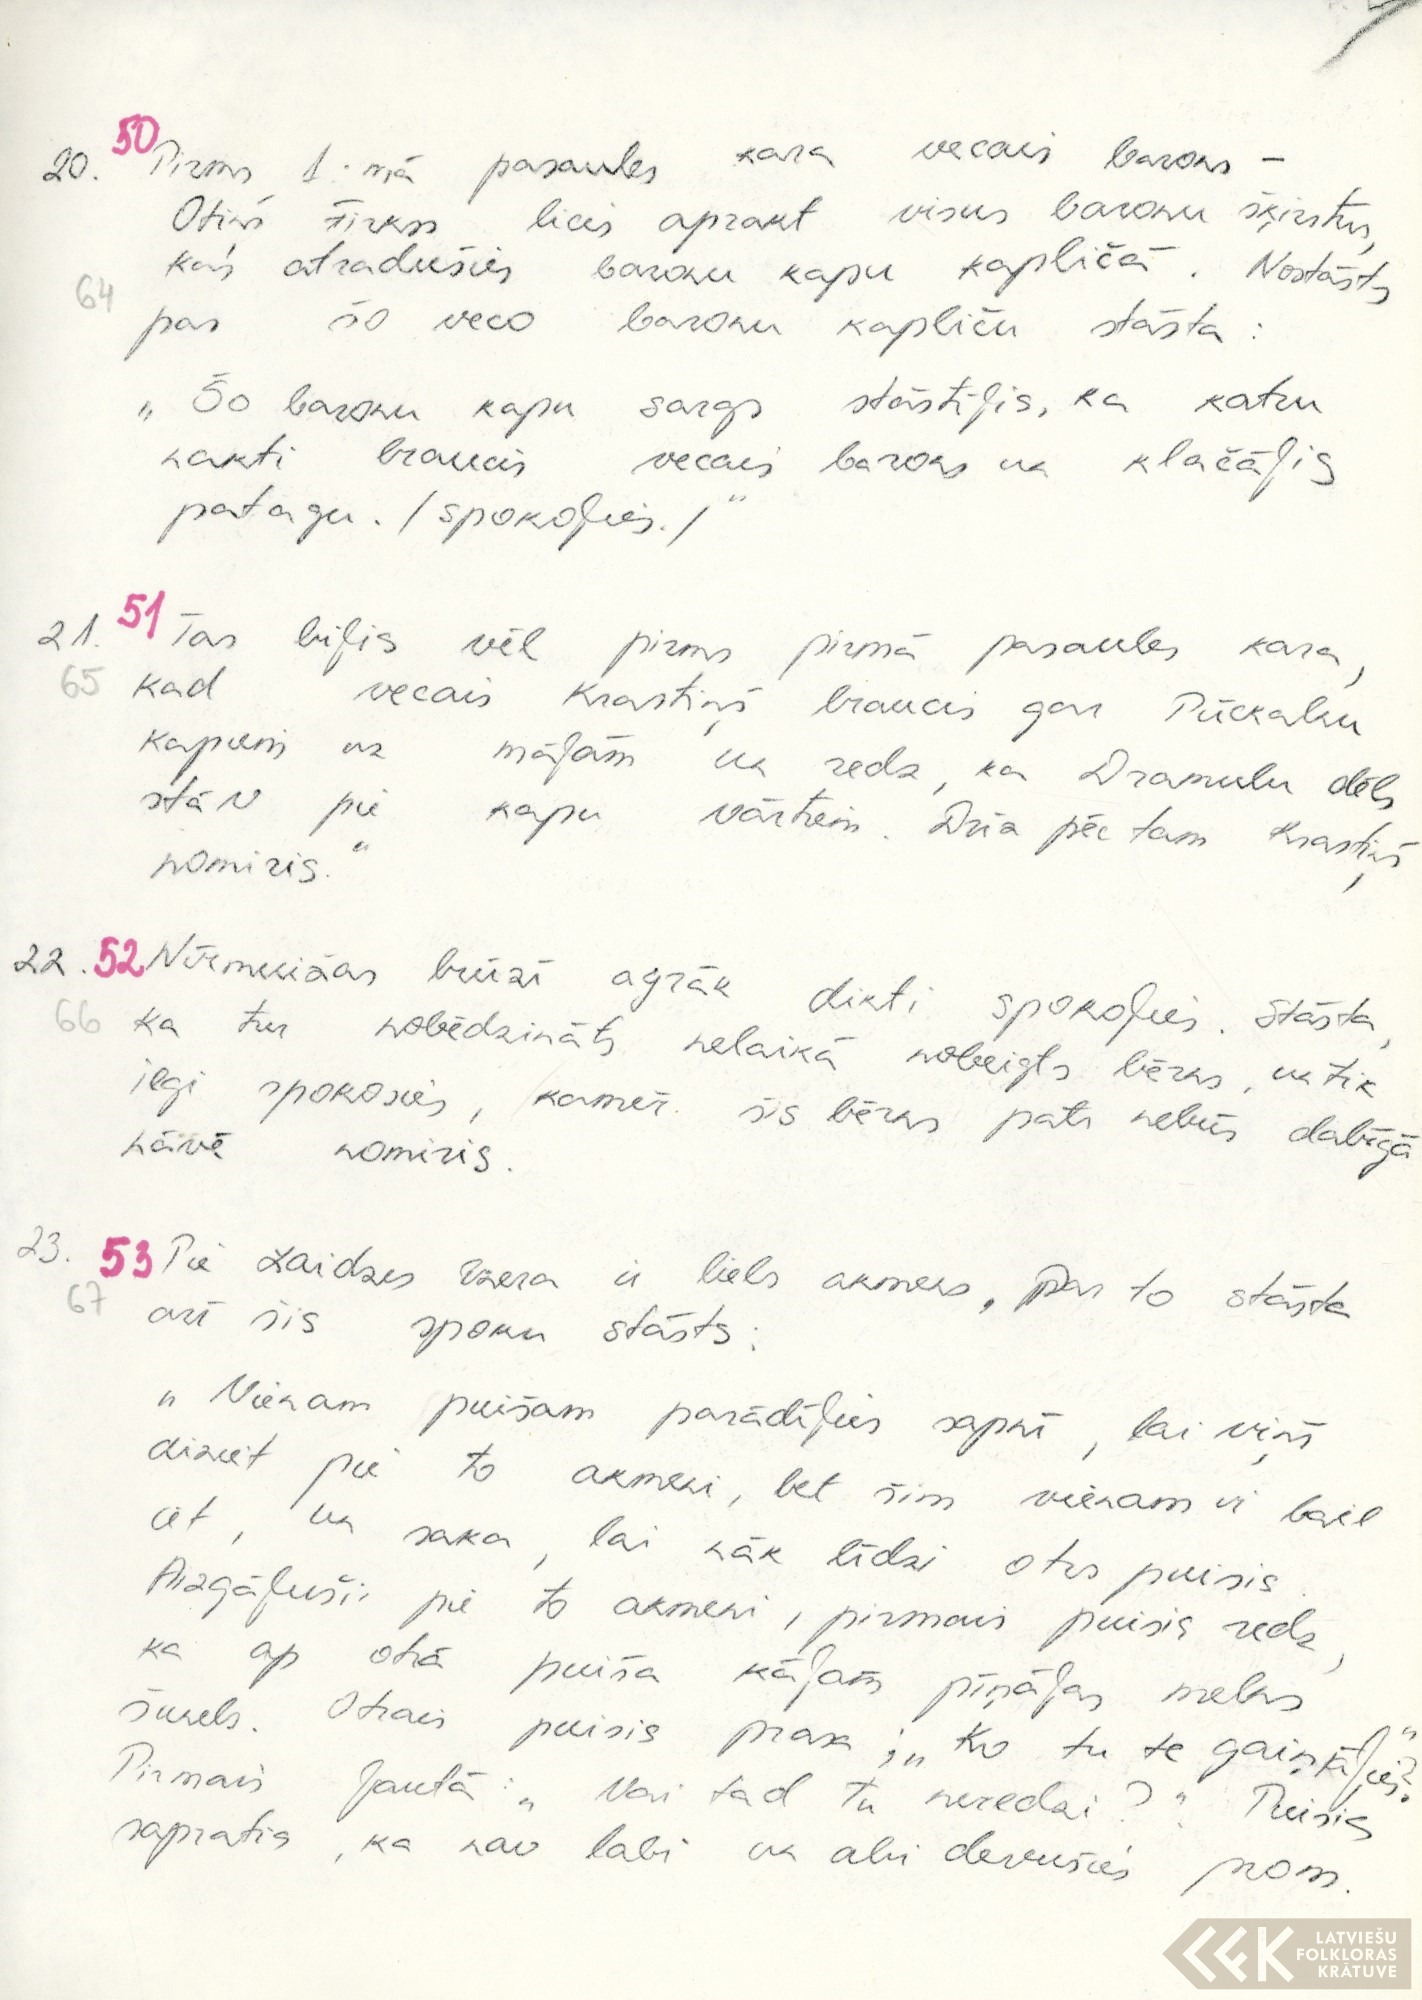 20. 50 Pirms 1.mā pasaules kara vecais barons –
Otiņš Firkss licis aprakt visus baronu šķirstus,
kas atradušies baronu kapu kapličā. Nostāsts
64
par šo veco baronu kapliču stāsta:
„Šo baronu kapu sargs stāstījis, ka katru
nakti braucis vecais barons un klačājis
patagu. /spokojies./"
21. 51 Tas bijis vēl pirms pirmā pasaules kara,
65 kad vecais Krastiņš braucis gar Pūckalnu
kapiem uz mājām un redz, ka Dramulu dēls
stāv pie kapu vārtiem. Drīz pēc tam Krastiņš
nomiris."
22. 52 Nurmuižas brūzī agrāk dikti spokojies. Stāsta,
66 ka tur nobēdzināts nelaikā nobeigts bērns, un tik
ilgi spokosies, kamēr šis bērns pats nebūs dabīgā
nāvē nomiris.
23. 53 Pie Laidzes ezera ir liels akmens, Par to stāsta
67 arī šis spoku stāsts:
„Vienam puišam parādījies sapnī, lai viņš
aiziet pie to akmeni, bet šim vienam ir bail
iet, un saka, lai nāk līdzi otrs puisis.
Aizgājuši pie to akmeni, pirmais puisis redz,
ka ap otrā puiša kājām pīņājas melns
šunels. Otrais puisis prasa; „Ko tu te gaiņājies?"
Pirmais jautā: „Vai tad tu neredzi?" Puisis
sapratis, ka nav labi un abi devušies prom.
LATVIEŠU
FOLKLORAS
KRĀTUVE